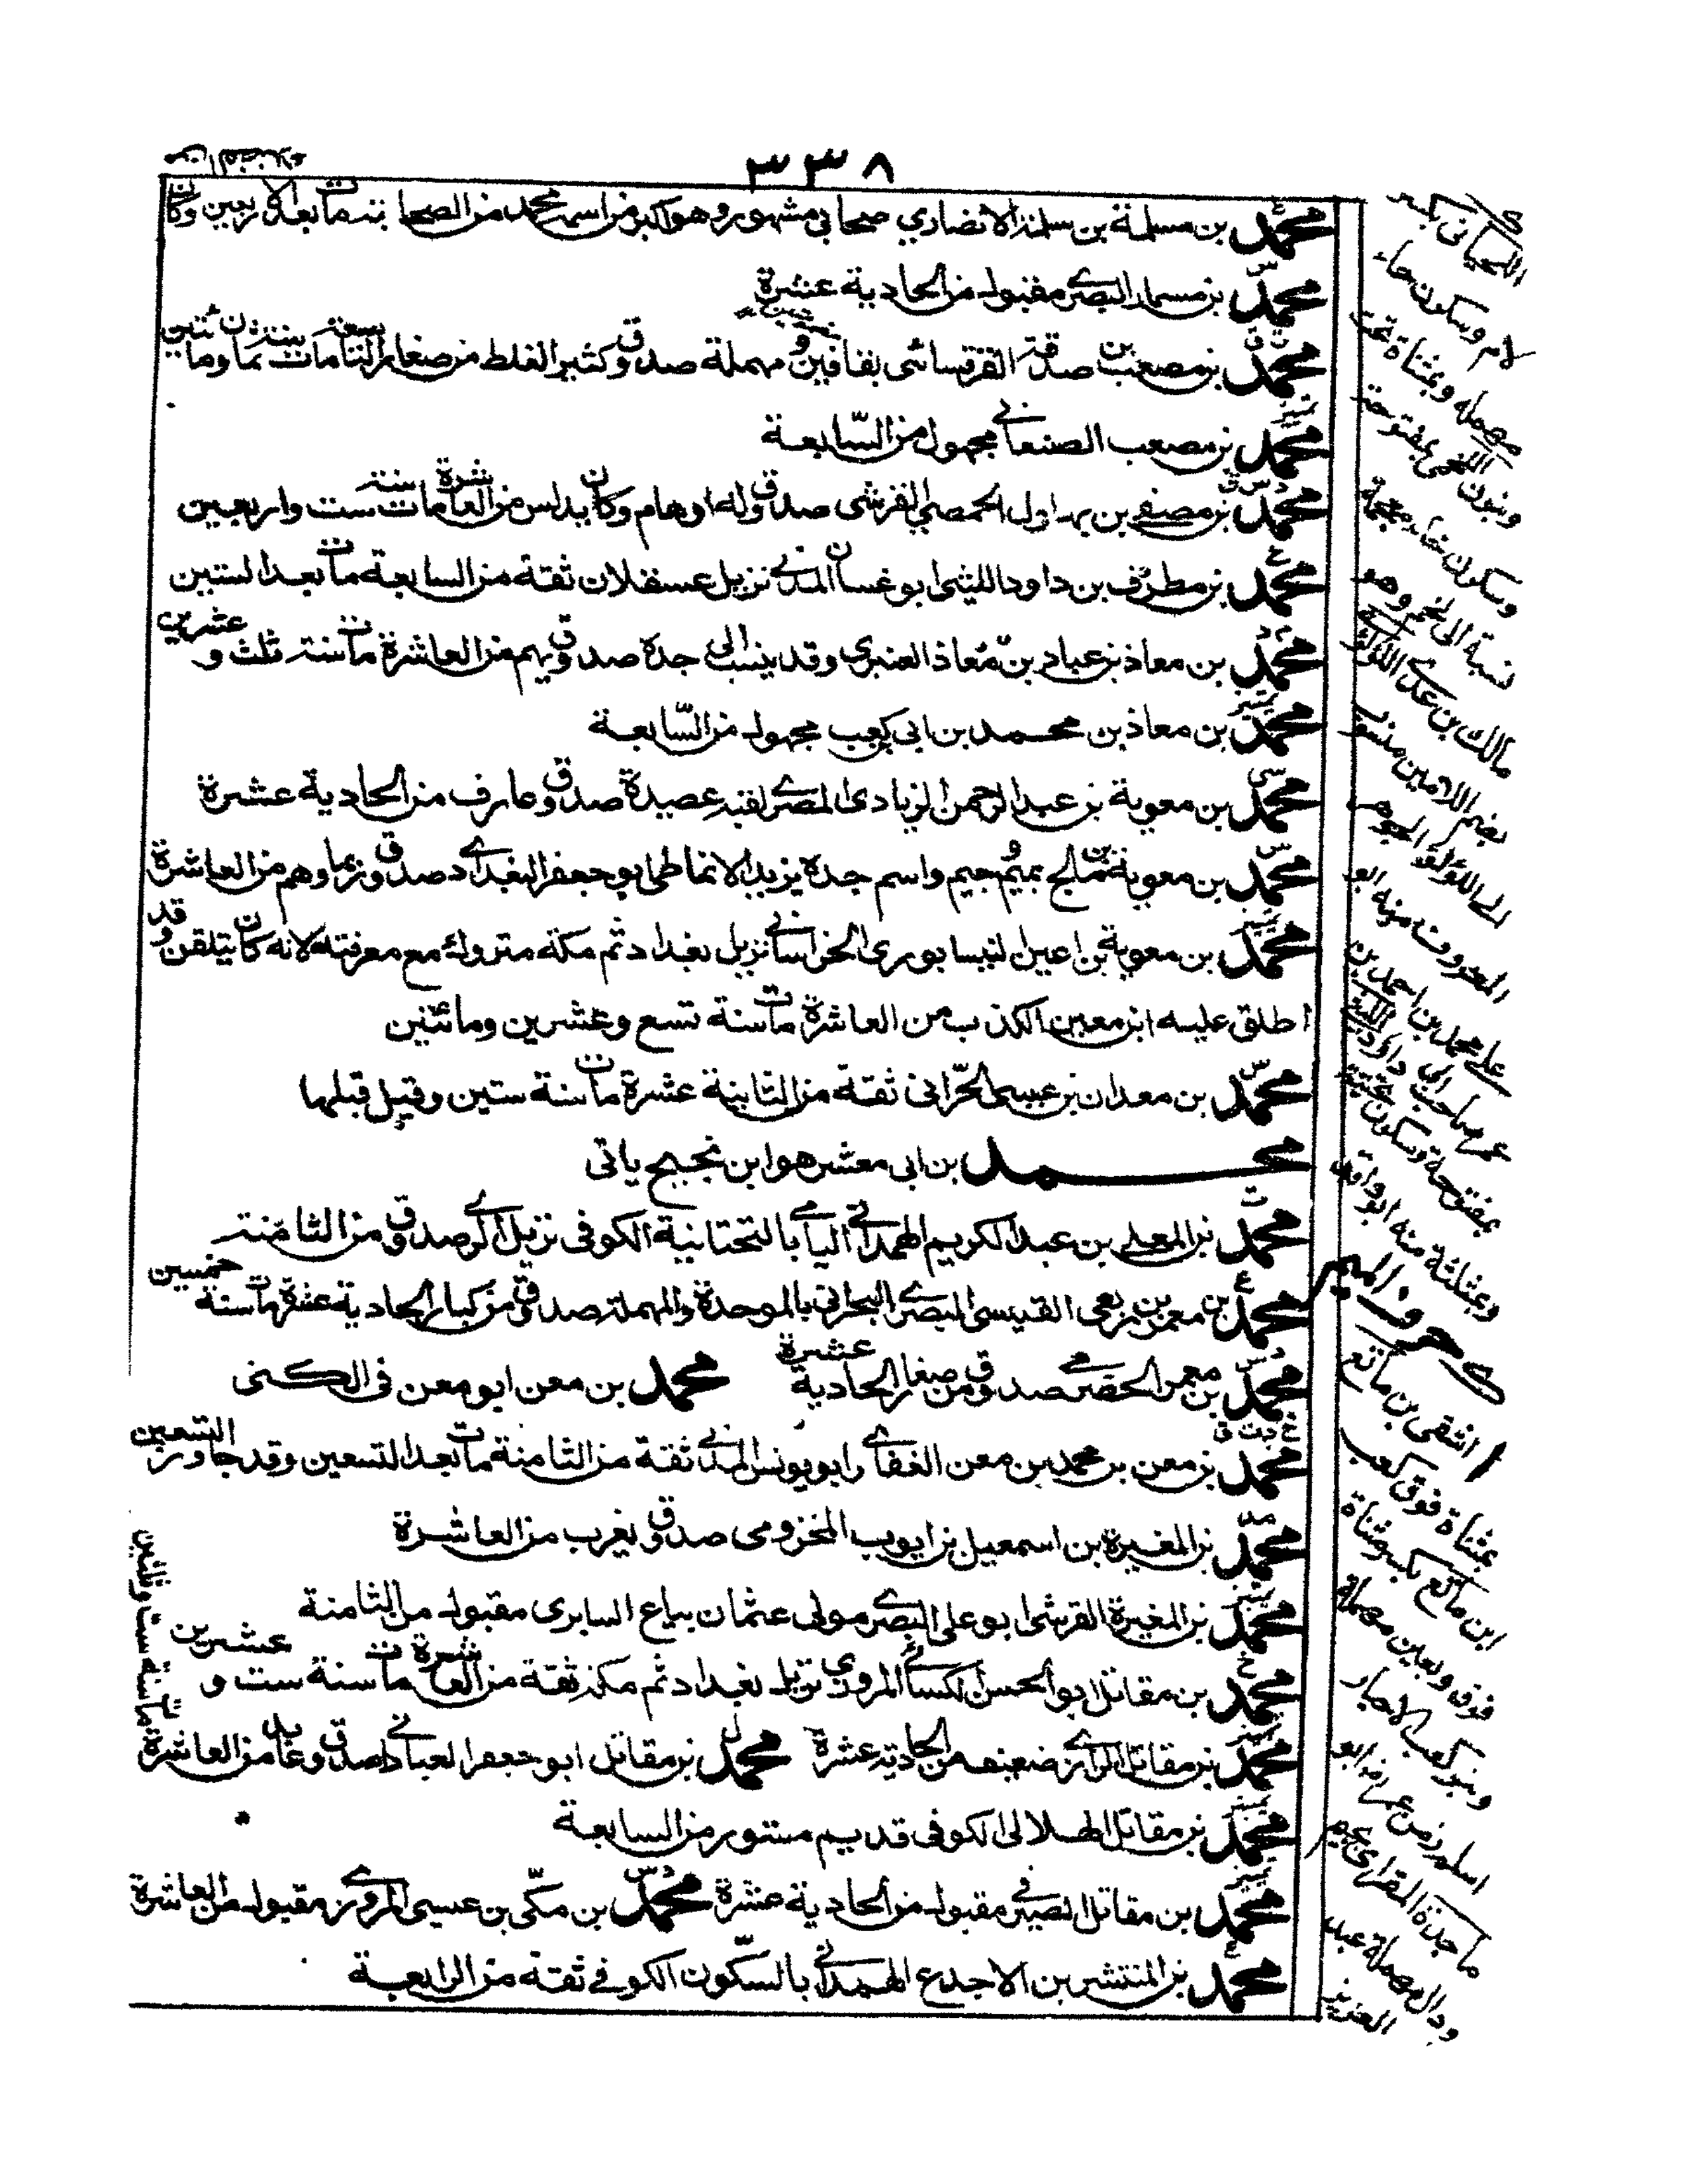 ٣٣٨
من الفضلاء
محمد بن مسلمة بن سلمة الانصاري صحابي مشهور وهو اكبر من اسمه محمد من الصحابة مات بعد الاربعين وكان
محمد بن مسمار البصري مقبول من الحادية عشرة
محمد بن مصعب بن صدقة القرقسائى بقافين و مهملة صدوق كثير الغلط من صغار التاسعة مات سنة ثمان ومائتين
محمد بن مصعب الصنعاني مجهول من السّابعة
محمد بن مصفى بن بهلول الحمصي القرشى صدوق له اوهام وكان يدلس من العاشرة مات سنة ست واربعين
محمد بن مطرّف بن داود الليثى ابو غسان المدني نزيل عسقلان ثقة من السابعة مات بعد الستين
محمد بن معاذ بن عباد بن مُعاذ العنبري وقد ينسب الى جده صدوق يهم من العاشرة مات سنة ثلث و عشرين
محمد بن معاذ بن محمد بن ابى كعب مجهول من السّابعة
محمد بن معوية بن عبد الرحمن الزيادى المصري لقبه عصيدة صدوق عارف من الحادية عشرة
محمد بن معوية بن مالج بميم و جيم واسم جده يزيد الانماطى ابو جعفر البغدادي صدوق ربما وهم من العاشرة
محمد بن معوية بن اعين النيسابورى الخراساني نزيل بغداد ثم مكة متروك مع معرفته لانه كان يتلقن وقد
اطلق عليه ابن معين الكذب من العاشرة مات سنة تسع وعشرين ومائتين
محمد بن معدان بن عيسى الحّرانى ثقة من الثانية عشرة مات سنة ستين وقيل قبلها
محمد بن ابى معشر هو ابن نجيح ياتى
محمد بن المعلى بن عبد الكريم الهمداني اليامي بالتحتانية الكوفى نزيل الري صدوق من الثامنة
محمد بن معمر بن ربعى القيسى البصري البحرانى بالموحدة والمهملة صدوق من كبار الحادية عشرة مات سنة خمسين
محمد بن معمر الحضرمي صدوق من صغار الحادية عشرة محمد بن معن ابو معن فى الكنى
محمد بن معن بن محمد بن معن الغفاري ابو يونس المدني ثقة من الثامنة مات بعد التسعين وقد جاوز التسعين
محمد بن المغيرة بن اسمعيل بن ايوب المخزومى صدوق يغرب من العاشرة
محمد بن المغيرة القرشى ابو على البصري مولى عثمان بياع السابرى مقبول من الثامنة
محمد بن مقاتل ابو الحسن الكسائي المروزي نزيل بغداد ثم مكة ثقة من العاشرة مات سنة ست و عشرين
محمد بن مقاتل الرازي ضعيف من الحادية عشرة محمد بن مقاتل ابو جعفر العباداني صدوق عابد من العاشرة مات سنة ست وثلثين
محمد بن مقاتل الهلالى الكوفى قديم مستور من السابعة
محمد بن مقاتل الصيرفي مقبول من الحادية عشرة محمد بن مكّى بن عيسى المروزي مقبول من العاشرة
محمد بن المنتشر بن الاجدع الهمداني بالسّكون الكوفى ثقة من الرابعة
اللحيانى بكسر
لام وسكون حاء
مهمله وبمثناة تحت
وبنون اللخمى بمفتوحة
وسكون خاء معجمة
نسبة الى لخم وهو
مالك بن عدى اللؤلؤى
بضم اللامين منسوب
الى اللؤلؤ
المعروف منه ابو
على محمد بن احمد بن
عمر صاحب ابى داود الليثى
بمفتوحة وسكون تحتية
وبمثلثة منه ابو واقد
حرف الميم
بمثناة فوق كعب
ابن ماتع بكسر مثناة
فوق وبعين مهملة
وهو كعب الاحبار
اسلم زمن عمر